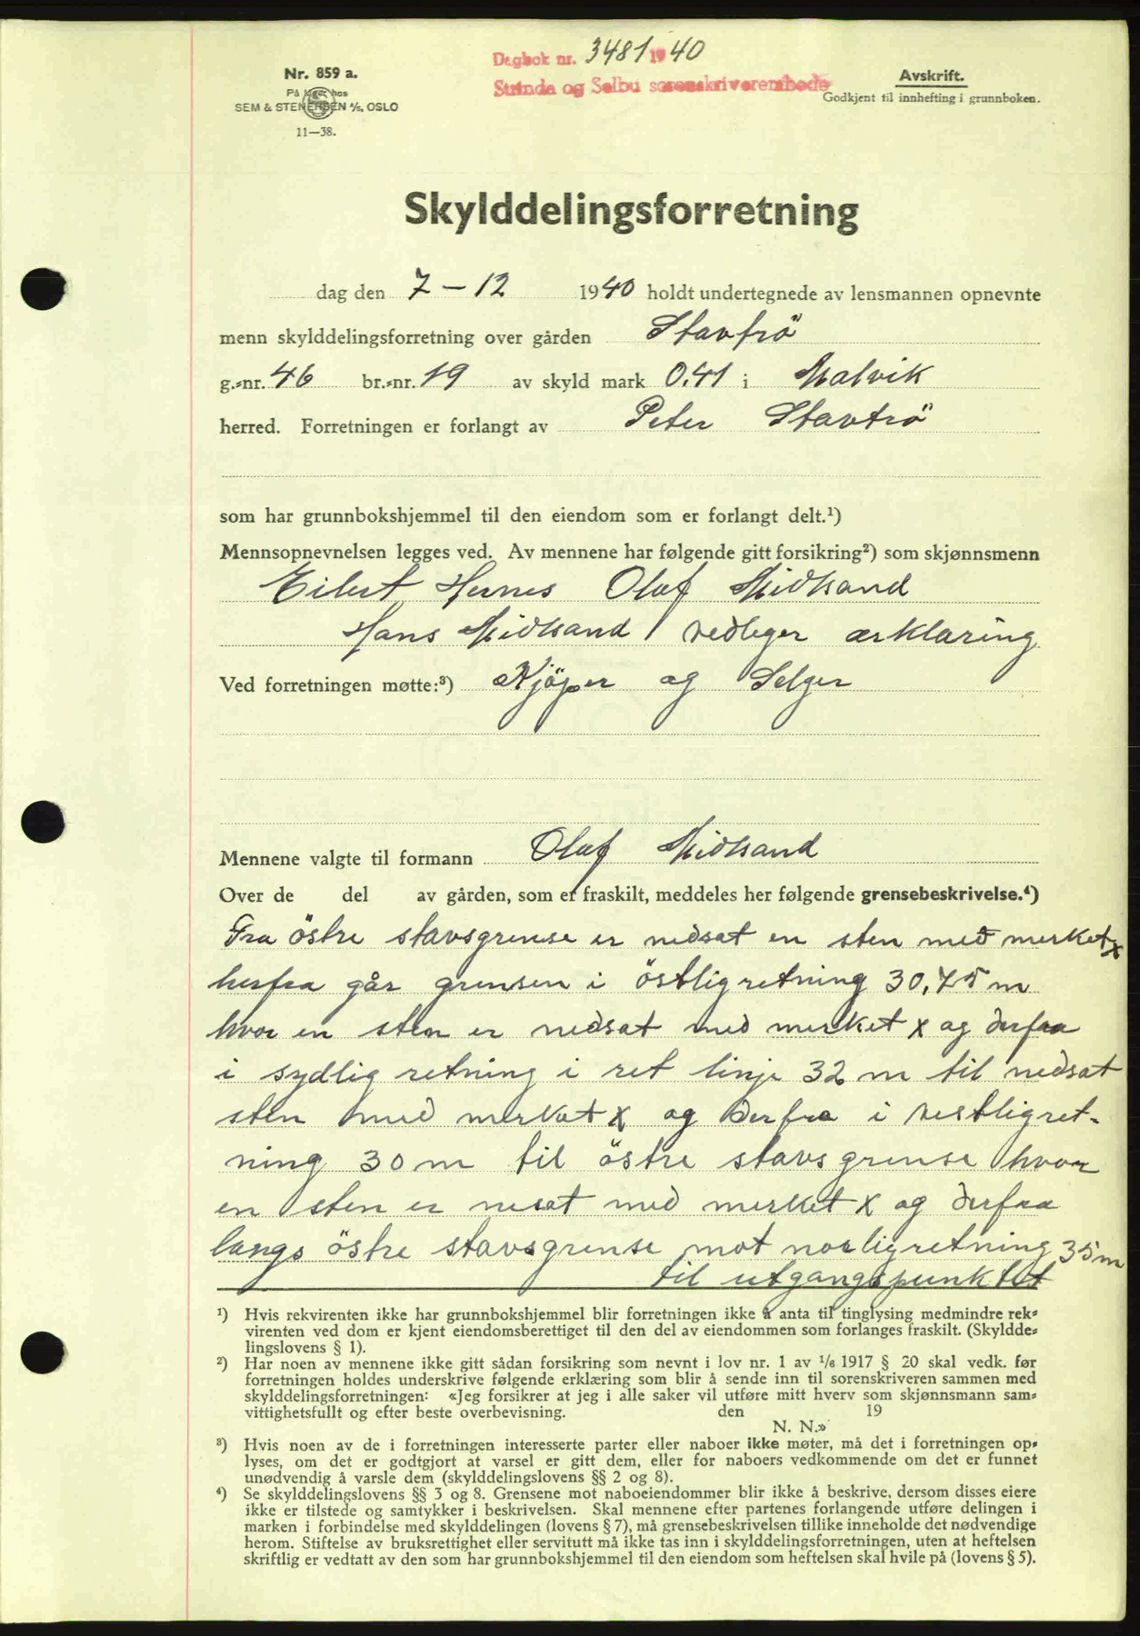 Dagbok nr. 3481 1940
Strinda og Selbu sorenskriverembede
Nr. 859 a.
På lager hos
SEM & STENERSEN A/S. OSLO
11—38.
Avskrift.
Godkjent til innhefting i grunnboken.
Skylddelingsforretning
dag den 7 - 12 1940 holdt undertegnede av lensmannen opnevnte
menn skylddelingsforretning over gården Stavtrö
g.-nr. 46 br.-nr. 19 av skyld mark 0.41 i Malvik
herred. Forretningen er forlangt av Peter Stavtrö
som har grunnbokshjemmel til den eiendom som er forlangt delt.¹)
Mennsopnevnelsen legges ved. Av mennene har følgende gitt forsikring²) som skjønnsmenn
Eilert Hernes Olaf Midtsand
Hans Midtsand vedleger ærklaring
Ved forretningen møtte:³) Kjöper og Selger
Mennene valgte til formann Olaf Midtsand
Over de del av gården, som er fraskilt, meddeles her følgende grensebeskrivelse.⁴)
Fra östre stavsgrense er nedsat en sten med merket x
herfra går grensen i östlig retning 30,75 m
hvor en sten er nedsat med merket x og derfra
i sydlig retning i ret linje 32 m til nedsat
sten med merket x og derfra i vestligret-
ning 30 m til östre stavsgrense hvor
en sten er nesat med merket x og derfra
langs östre stavsgrense mot norligretning 35 m
til utgangspunktet
¹) Hvis rekvirenten ikke har grunnbokshjemmel blir forretningen ikke å anta til tinglysing medmindre rek-
virenten ved dom er kjent eiendomsberettiget til den del av eiendommen som forlanges fraskilt. (Skyldde-
lingslovens § 1).
²) Har noen av mennene ikke gitt sådan forsikring som nevnt i lov nr. 1 av 1/6 1917 § 20 skal vedk. før
forretningen holdes underskrive følgende erklæring som blir å sende inn til sorenskriveren sammen med
skylddelingsforretningen: «Jeg forsikrer at jeg i alle saker vil utføre mitt hverv som skjønnsmann sam-
vittighetsfullt og efter beste overbevisning. den 19
N. N.»
³) Hvis noen av de i forretningen interesserte parter eller naboer ikke møter, må det i forretningen op-
lyses, om det er godtgjort at varsel er gitt dem, eller for naboers vedkommende om det er funnet
unødvendig å varsle dem (skylddelingslovens §§ 2 og 8).
⁴) Se skylddelingslovens §§ 3 og 8. Grensene mot naboeiendommer blir ikke å beskrive, dersom disses eiere
ikke er tilstede og samtykker i beskrivelsen. Skal mennene efter partenes forlangende utføre delingen i
marken i forbindelse med skylddelingen (lovens § 7), må grensebeskrivelsen tillike inneholde det nødvendige
herom. Stiftelse av bruksrettighet eller servitutt må ikke tas inn i skylddelingsforretningen, uten at heftelsen
skriftlig er vedtatt av den som har grunnbokshjemmel til den eiendom som heftelsen skal hvile på (lovens § 5).